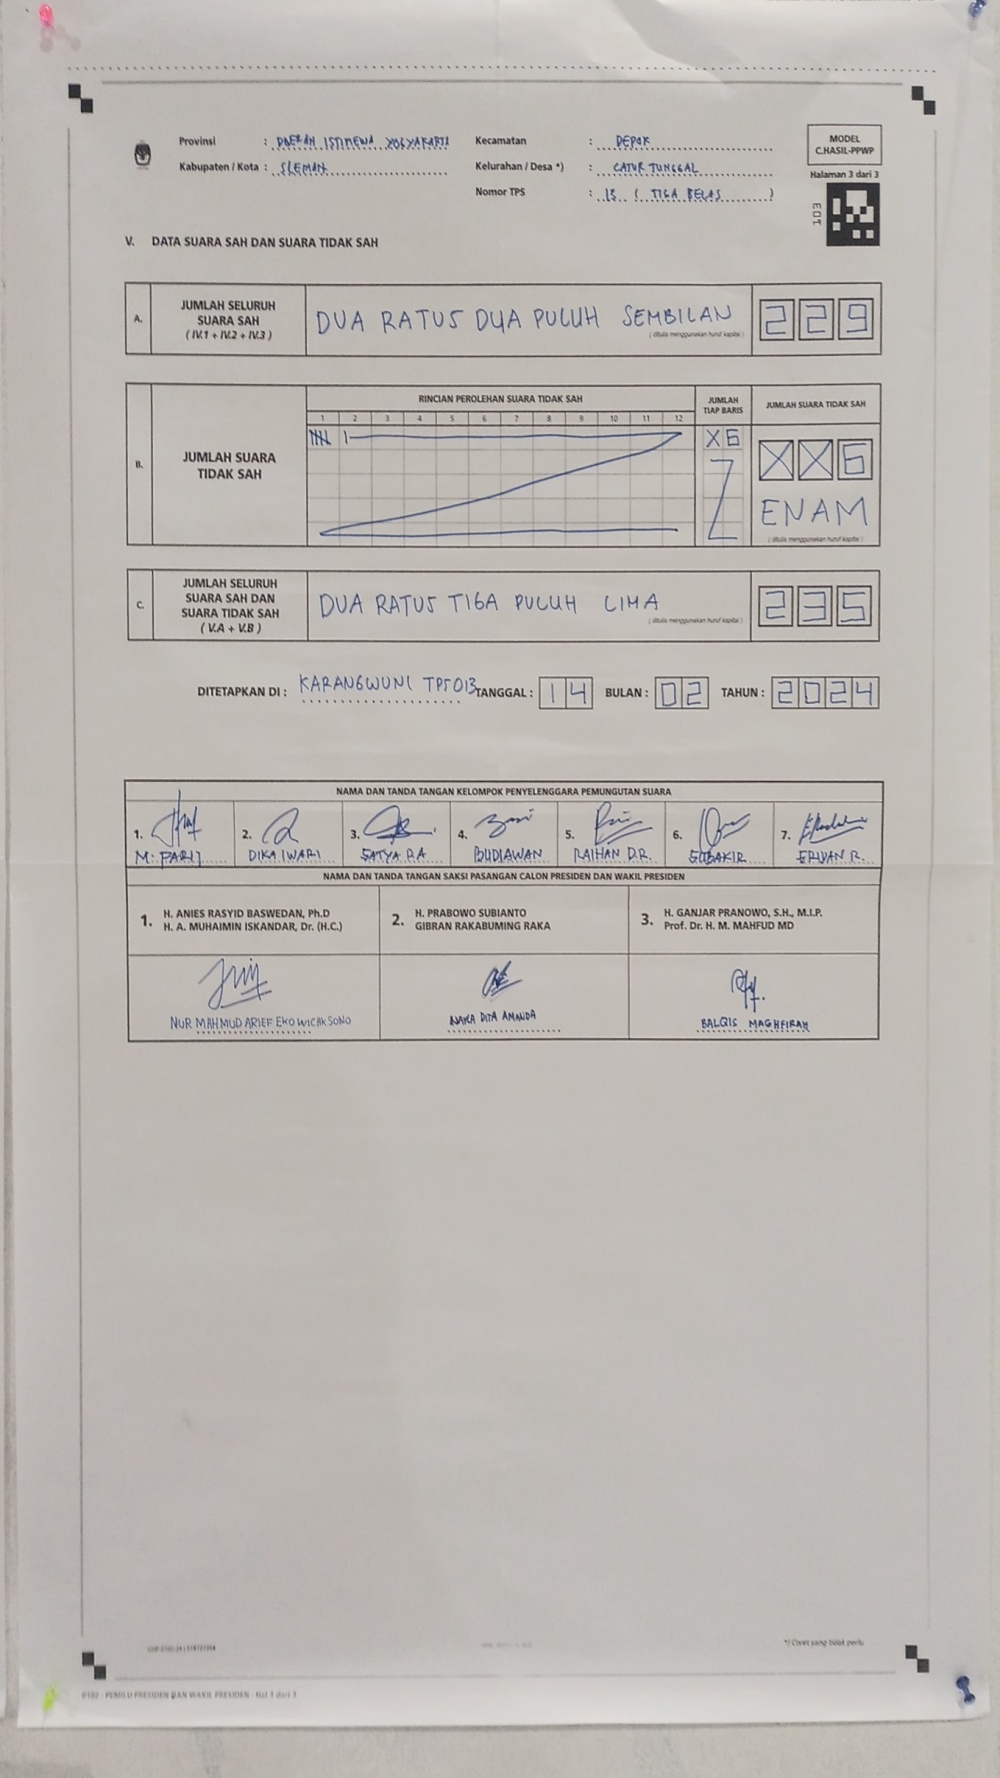 Provinsi : DAERAH ISTIMEWA YOGYAKARTA Kecamatan : DEPOK
MODEL
C.HASIL-PPWP
Kabupaten / Kota : SLEMAN Kelurahan / Desa *) : CATUR TUNGGAL
Halaman 3 dari 3
Nomor TPS : 13 ( TIGA BELAS )
E01
V. DATA SUARA SAH DAN SUARA TIDAK SAH
A. JUMLAH SELURUH SUARA SAH ( IV.1 + IV.2 + IV.3 ) DUA RATUS DUA PULUH SEMBILAN 229
( ditulis menggunakan huruf kapital )
RINCIAN PEROLEHAN SUARA TIDAK SAH JUMLAH TIAP BARIS JUMLAH SUARA TIDAK SAH
1 2 3 4 5 6 7 8 9 10 11 12
X6
B. JUMLAH SUARA TIDAK SAH XX6
ENAM
( ditulis menggunakan huruf kapital )
C. JUMLAH SELURUH SUARA SAH DAN SUARA TIDAK SAH ( V.A + V.B ) DUA RATUS TIGA PULUH LIMA 235
( ditulis menggunakan huruf kapital )
DITETAPKAN DI : KARANGWUNI TPS 013 TANGGAL : 14 BULAN : 02 TAHUN : 2024
NAMA DAN TANDA TANGAN KELOMPOK PENYELENGGARA PEMUNGUTAN SUARA
1. 2. 3. 4. 5. 6. 7.
DIKA IWARI SATYA P.A BUDIAWAN RAIHAN D.R. SUBAKIR ERVAN R.
NAMA DAN TANDA TANGAN SAKSI PASANGAN CALON PRESIDEN DAN WAKIL PRESIDEN
1. H. ANIES RASYID BASWEDAN, Ph.D
H. A. MUHAIMIN ISKANDAR, Dr. (H.C.)
2. H. PRABOWO SUBIANTO
GIBRAN RAKABUMING RAKA
3. H. GANJAR PRANOWO, S.H., M.I.P.
Prof. Dr. H. M. MAHFUD MD
NUR MAHMUD ARIEF EKO WICAKSONO DITA AMANDA BALQIS MAGHFIRAH
*) Coret yang tidak perlu
0102 - PEMILU PRESIDEN DAN WAKIL PRESIDEN - Hal 3 dari 3